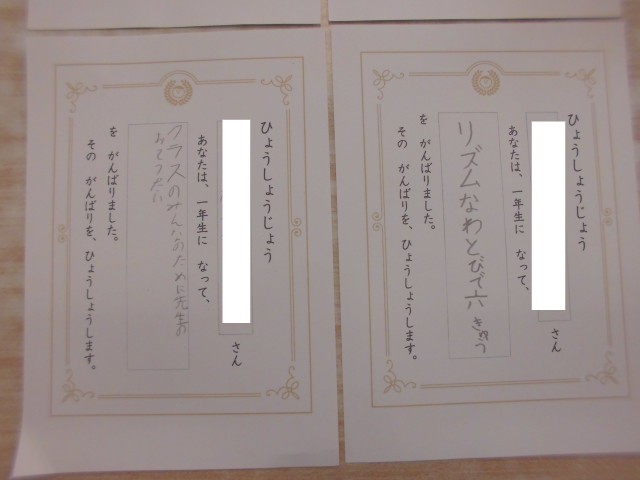 ひょうしょうじょう
さん
あなたは、一年生に なって、
リズムなわとびで六きゅう
を がんばりました。
その がんばりを、ひょうしょうします。
ひょうしょうじょう
さん
あなたは、一年生に なって、
クラスのみんなのために先生の
おてつだい
を がんばりました。
その がんばりを、ひょうしょうします。